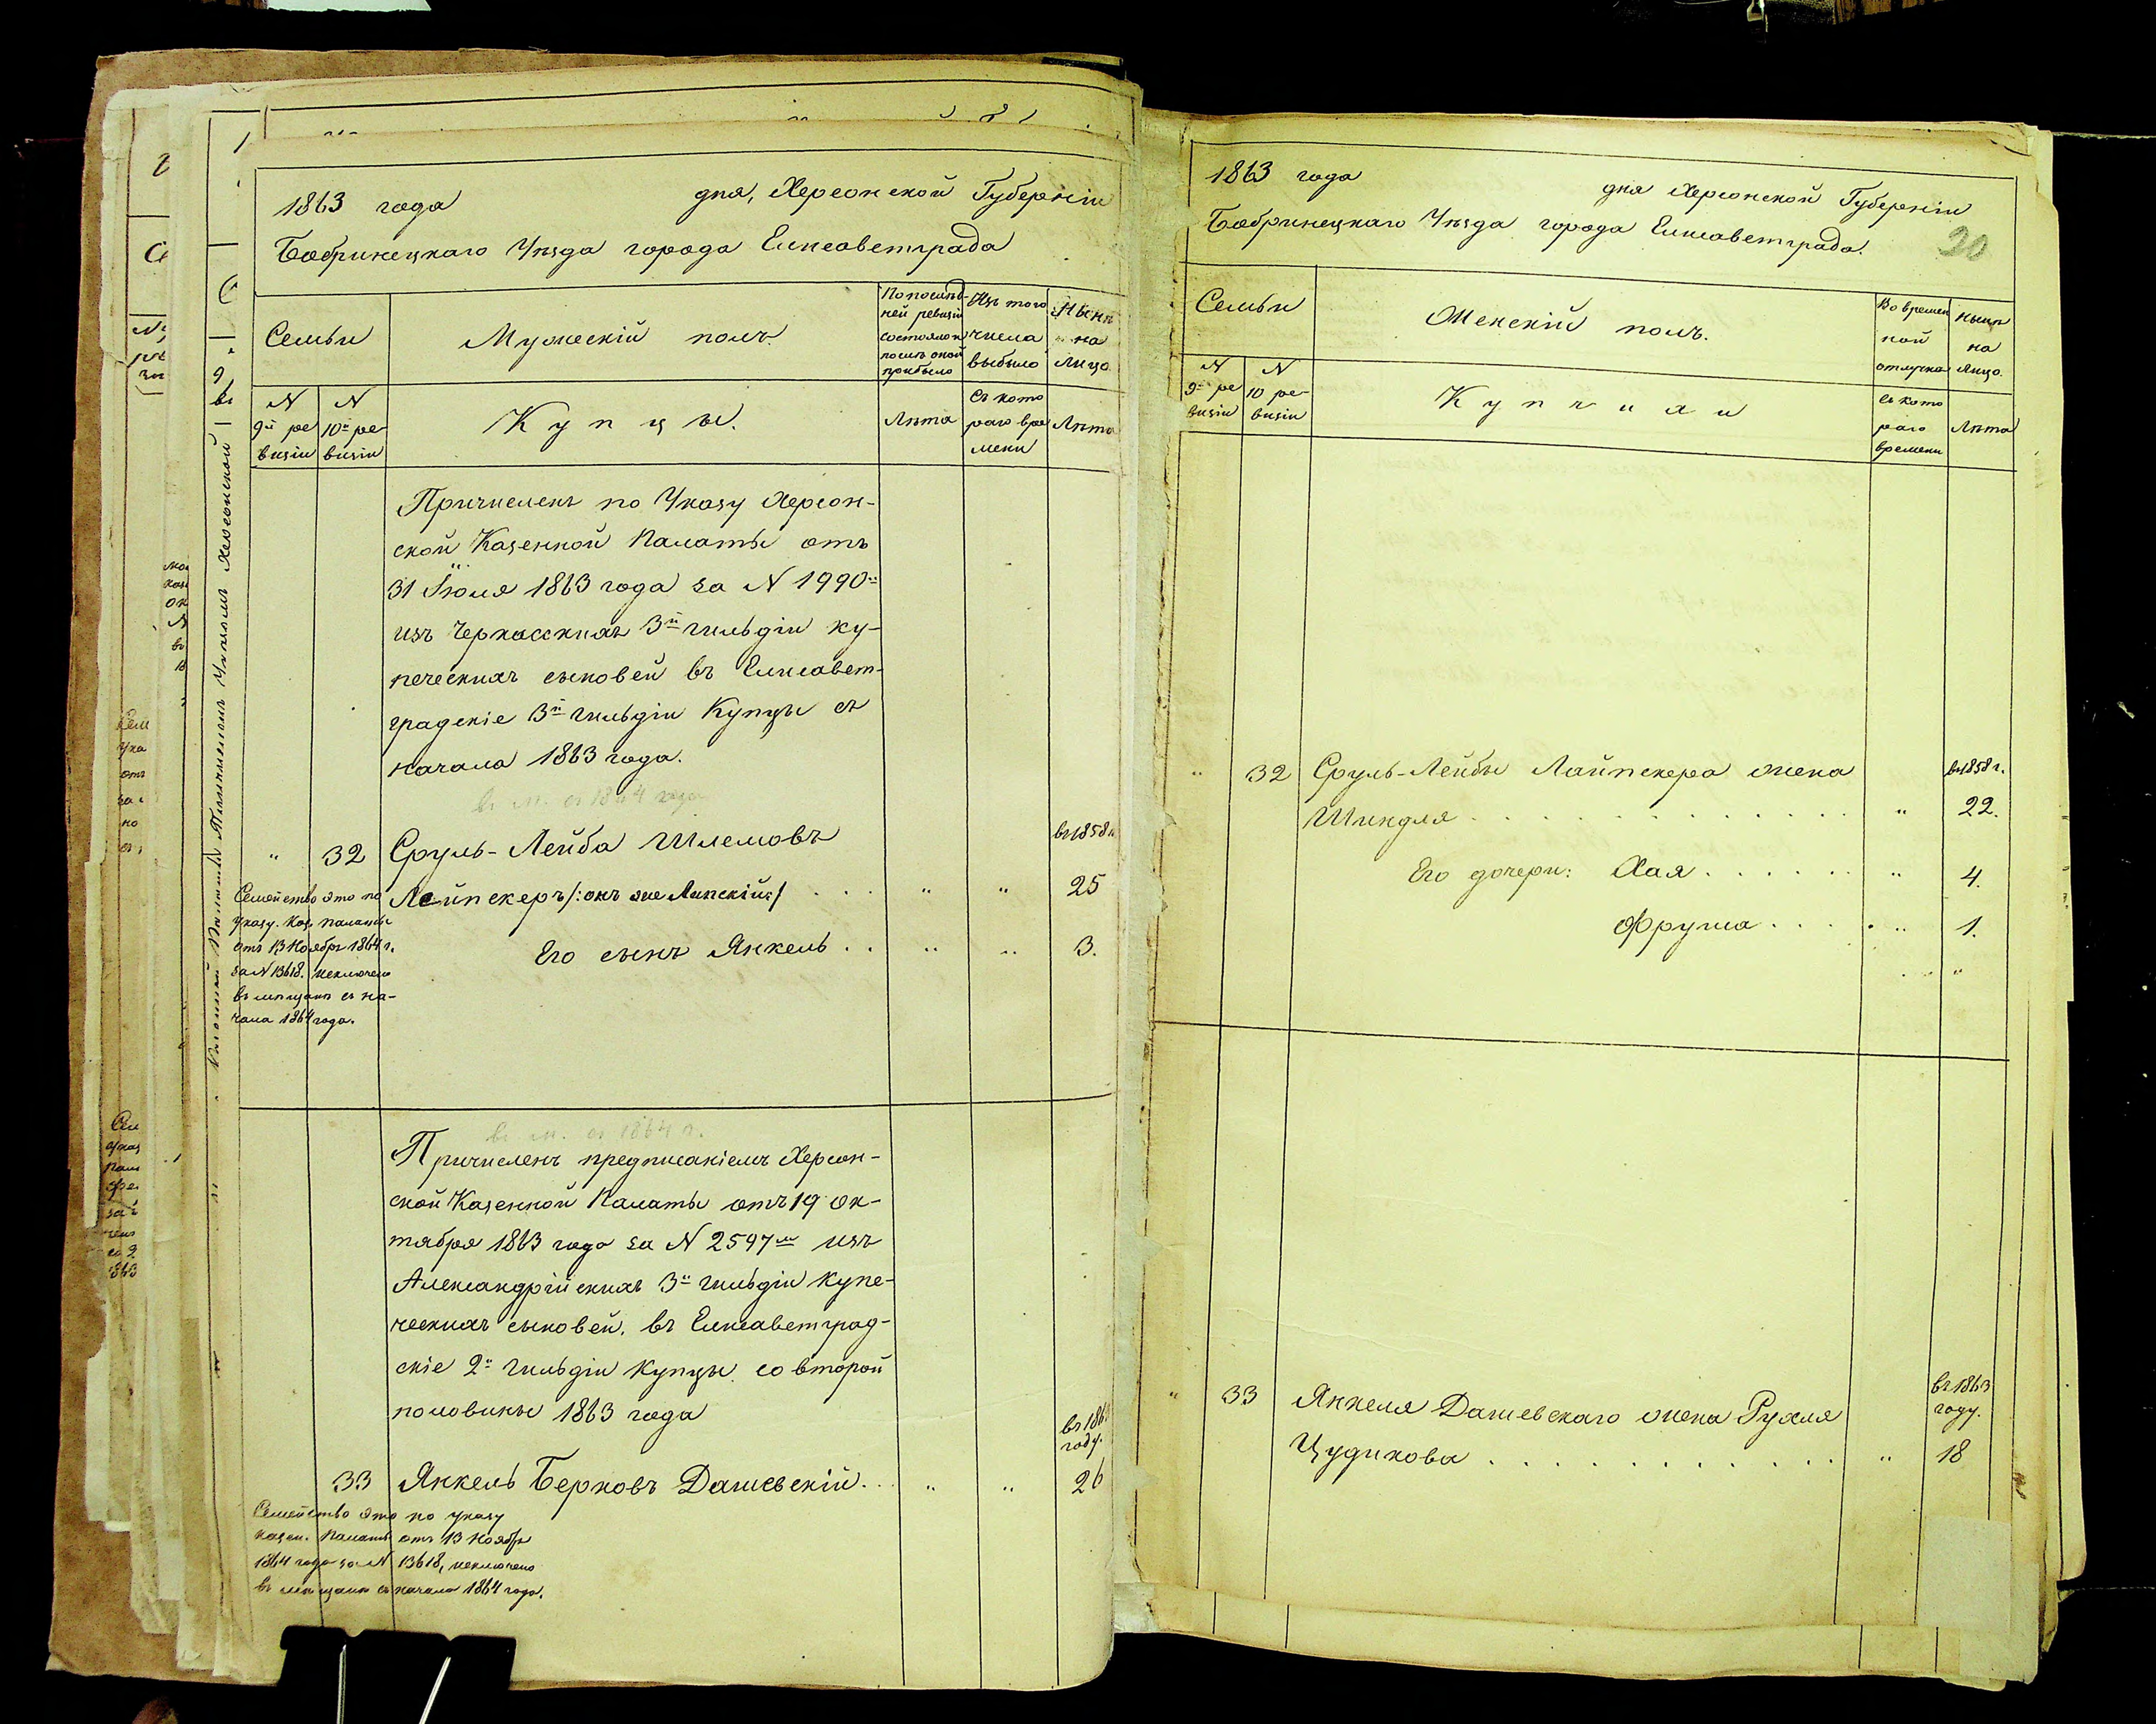 1863 года дня, Херсонской Губерніи
Бобринецкаго Уѣзда города Елисаветграда
Семьи
Мужескій полъ.
По послѣд-
ней ревизіи
состояло и
послѣ оной
прибыло
Изъ того
числа
выбыло
Нынѣ
на
лицо
N
9й ре
визіи
N
10й ре-
визіи
Купцы.
Лѣта
Съ кото
раго вре
мени
Лѣта
Причисленъ по Указу Херсон-
ской Казенной Палаты отъ
31 Іюля 1863 года за N 1990м
изъ Черкасскихъ 3й гильдіи ку-
печескихъ сыновей въ Елисавет-
градскіе 3й гильдіи Купцы съ
начала 1863 года.
въ м. съ 1864 года
" 32 Сруль-Лейба Шлемовъ въ 1858 г.
Лейпскеръ /:онъ же Липскій:/ . . . " " 25
Его сынъ Янкель . . " " 3.
Семейство это по
Указу Каз. палаты
отъ 13 Ноября 1864 г.
за N 13618. исключено
въ мѣщане съ на-
чала 1864 года.
въ м. съ 1864 г.
Причисленъ предписаніемъ Херсон-
ской Казенной Палаты отъ 19 Ок-
тября 1863 года за N 2597м изъ
Александрійскихъ 3й гильдіи купе-
ческихъ сыновей, въ Елисаветград-
скіе 2й гильдіи Купцы со второй
половины 1863 года
въ 1863
году.
33 Янкель Берковъ Дашевскій . . " " 26
Семейство это по указу
казен. Палаты отъ 13 Ноября
1864 года за N 13618, исключено
въ мѣщане съ начала 1864 года.
1863 года дня Херсонской Губерніи
Бобринецкаго Уѣзда города Елисаветграда.
20
Семьи
Женскій полъ.
Во времен
ной
отлучкѣ
нынѣ
на
лицо.
N
9й ре
визіи
N
10 ре-
визіи
Купчихи
съ кото
раго
времени
Лѣта
" 32 Сруль-Лейбы Лайпскера жена въ 1858 г.
Шиндля . . . . . . . . . . . . . " 22.
Его дочери: Хая . . . . . . " 4.
Фрума . . . . . " 1.
" 33 Янкеля Дашевскаго жена Рухля
въ 1863
году.
Цудикова . . . . . . . . . . . . " 18